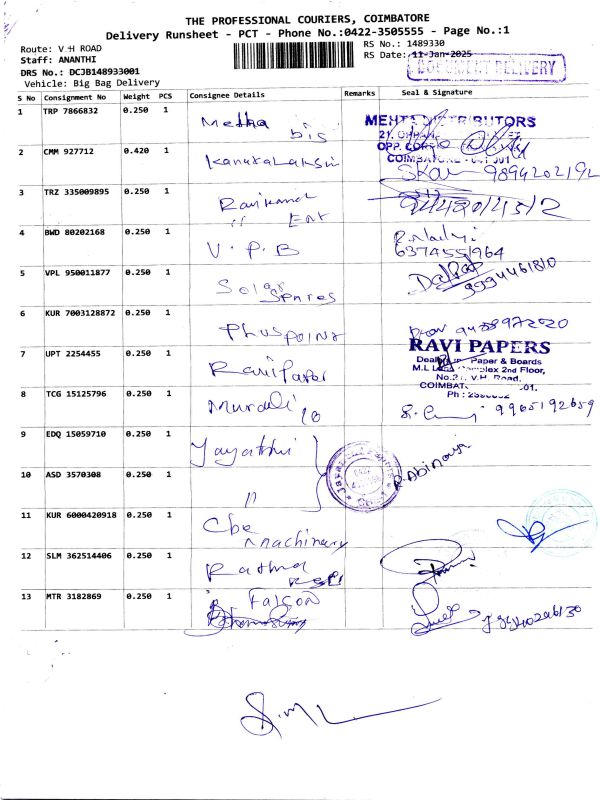 THE PROFESSIONAL COURIERS, COIMBATORE
Delivery Runsheet - PCT - Phone No.:0422-3505555 - Page No.:1
Route: V.H ROAD
RS No.: 1489330
Staff: ANANTHI
RS Date: 11-Jan-2025
DRS No.: DCJB148933001
DOCUMENT DELIVERY
Vehicle: Big Bag Delivery
S No Consignment No Weight PCS Consignee Details Remarks Seal & Signature
1 TRP 7866832 0.250 1 Metha bis MEHTA DISTRIBUTORS
21,
OPP.
COIMBATORE
2 CMM 927712 0.420 1 9894202192
3 TRZ 335009895 0.250 1 Ravikamal
" Ent
4 BWD 80202168 0.250 1 V.P.B
6374551964
5 VPL 950011877 0.250 1 Solar
Spares
9994461810
6 KUR 7003128872 0.250 1 Plus point
7 UPT 2254455 0.250 1 Ravi Paper RAVI PAPERS
Dealers in Paper & Boards
M.L Complex 2nd Floor,
V.H. Road,
Ph :
8 TCG 15125796 0.250 1 Murali 9965192659
9 EDQ 15059710 0.250 1 Jayathri
R. Abinaya
10 ASD 3570308 0.250 1 "
11 KUR 6000420918 0.250 1 Cbe
Machinary
12 SLM 362514406 0.250 1 Rathna
13 MTR 3182869 0.250 1 Falcon